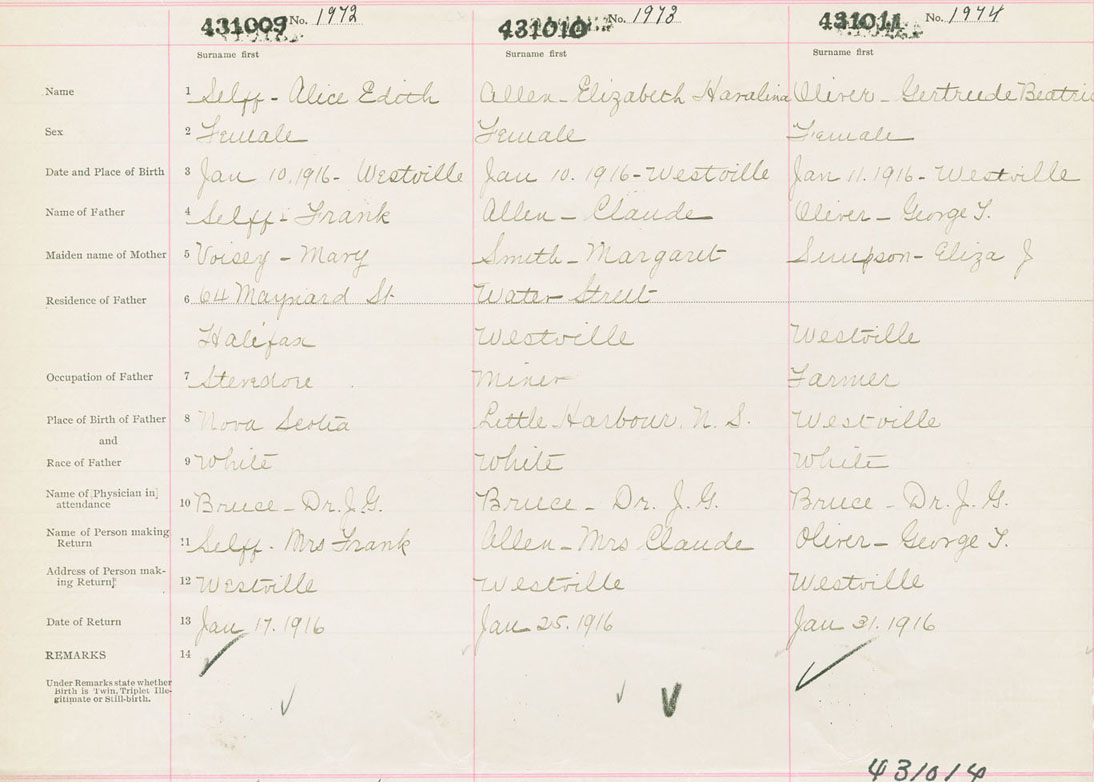 431009 No. 1972 431010 No. 1973 431011 No. 1974
Surname first Surname first Surname first
Name 1 Selff - Alice Edoth Allen - Elizabeth Havalina Oliver - Gertrude Beatric
Sex 2 Female Female Female
Date and Place of Birth 3 Jan 10.1916 - Westville Jan 10. 1916 - Westville Jan 11. 1916 - Westville
Name of Father 4 Selff - Frank Allen - Claude Oliver - George T.
Maiden name of Mother 5 Voisey - Mary Smith - Margaret Simpson - Eliza J
Residence of Father 6 64 Maynard St. Water Street
Halifax Westville Westville
Occupation of Father 7 Stevedore Miner Farmer
Place of Birth of Father 8 Nova Scotia Little Harbour. N. S. Westville
and
Race of Father 9 White White White
Name of [Physician in] attendance 10 Bruce - Dr. J. G. Bruce - Dr. J. G. Bruce - Dr. J. G.
Name of Person making Return 11 Selff - Mrs Frank Allen - Mrs Claude Oliver - George T.
Address of Person mak-
ing Return 12 Westville Westville Westville
Date of Return 13 Jan 17. 1916 Jan 25. 1916 Jan 31. 1916
REMARKS 14
Under Remarks state whether
Birth is Twin, Triplet Ille-
gitimate or Still-birth.
431014